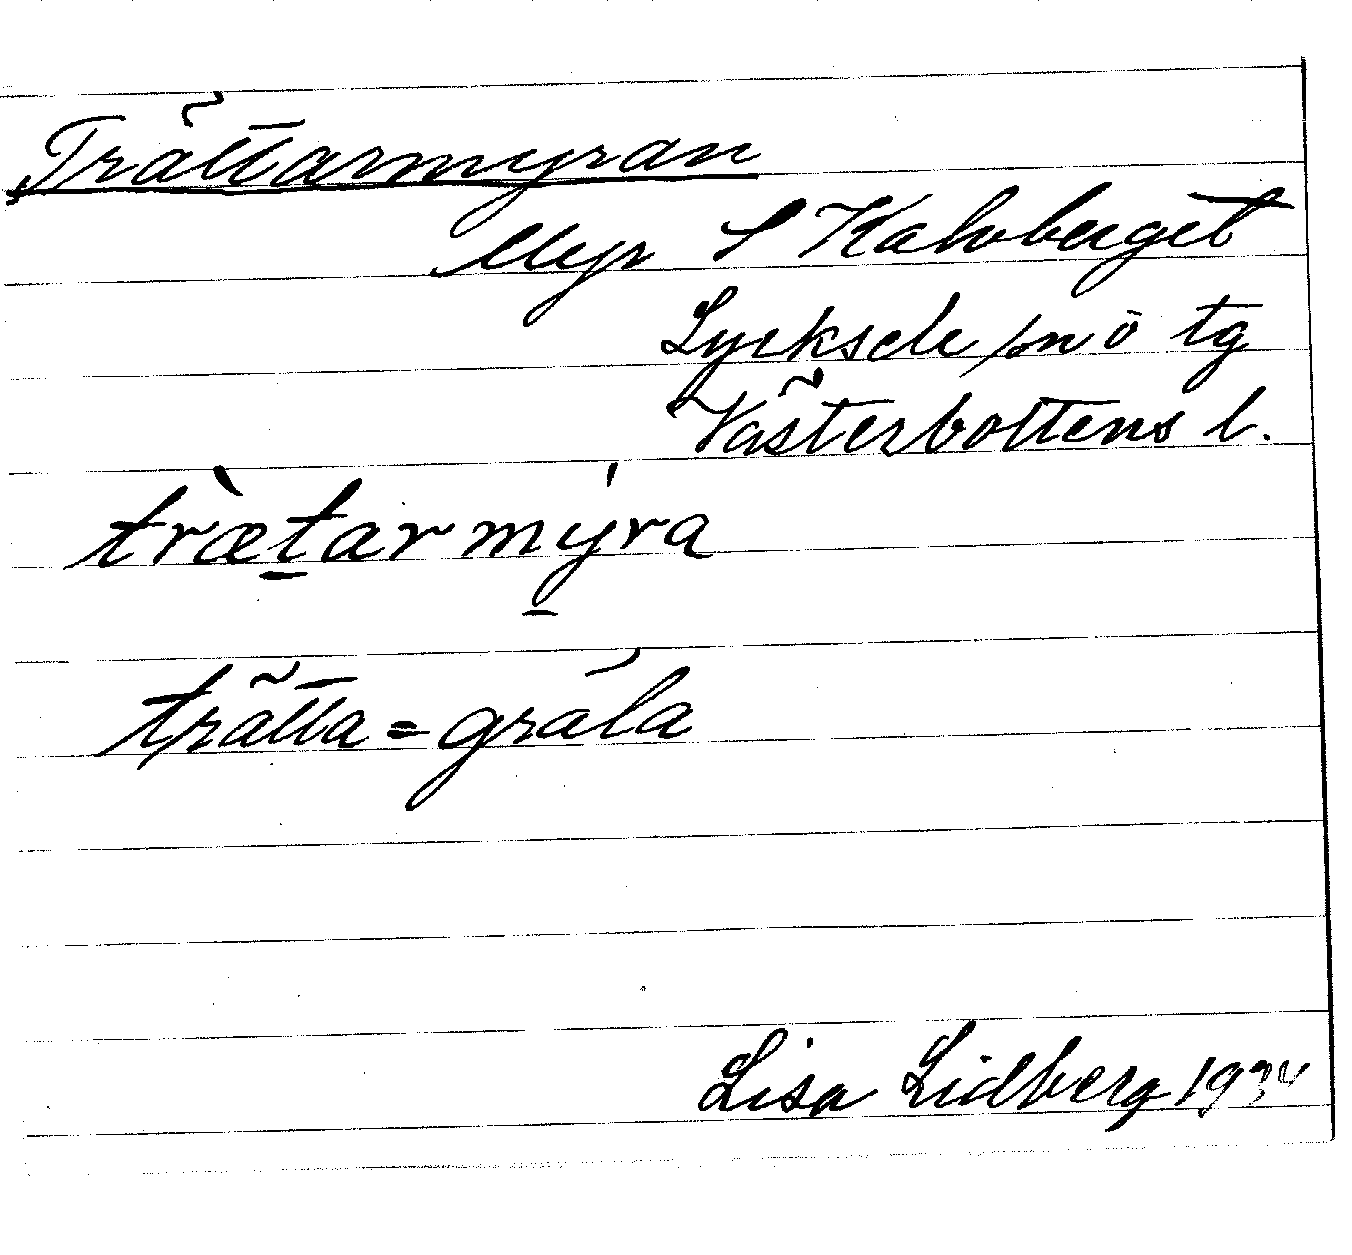 Trättarmyran
Myr S Kalvberget
Lycksele sn o tg
Västerbottens l.
træ̀t̠armý̠ra
trätta = gräla
Lisa Lidberg 1934